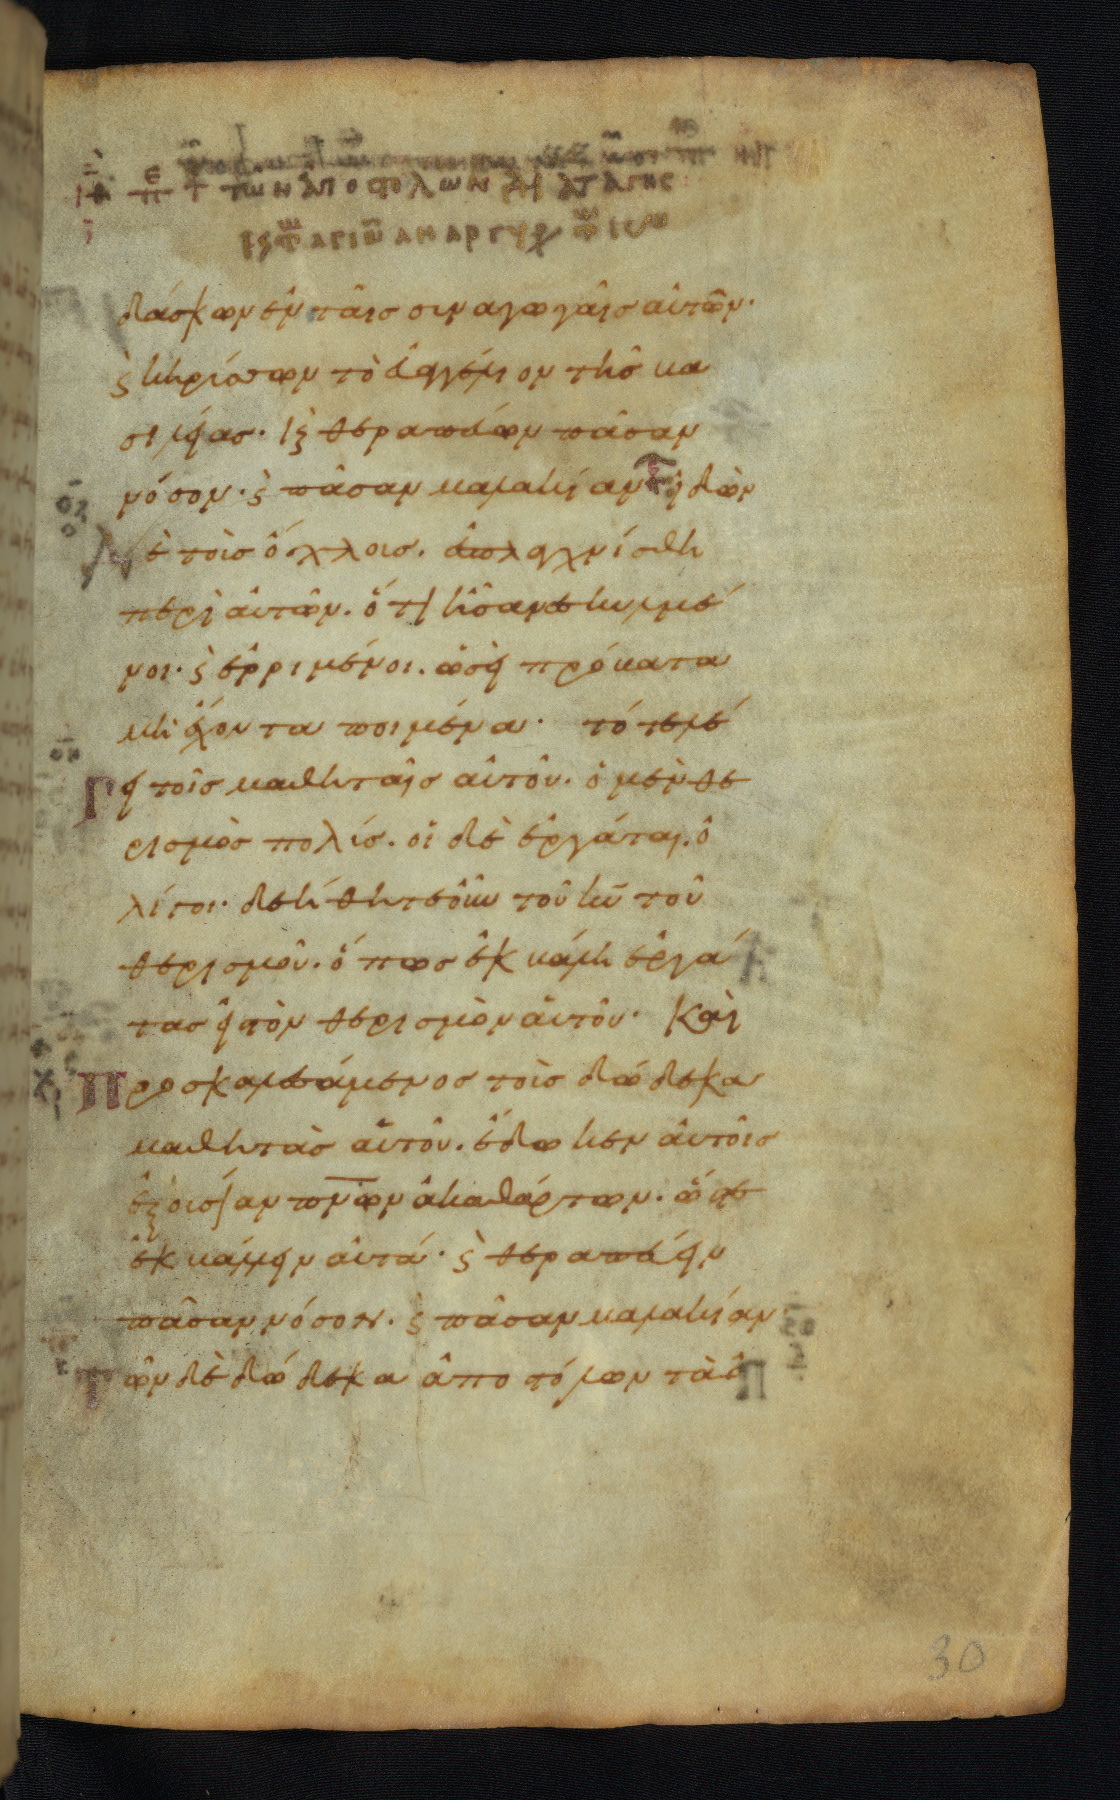 ΤΩΝ ΑΠΟϹΤΟΛΩΝ ΔΙΑΤΑΓΗϹ
ΑΓΙΩ ΑΝΑΡΓΥΡ
δάσκων ἐν ταῖς σιναγωγαῖς αὐτῶν·
ϛ κηρίσων τὸ εὐαγγέλιον τῆσ βα
σιλείας· ϗ θεραπεύων πᾶσαν
νόσον· ϛ πᾶσαν μαλακίαν ἰδὼν
δὲ τοὶς ὄχλοισ. ἐσπλαγχνίσθη
περὶ αὐτῶν. ὅτι ἦσαν ἐσκυλμέ
νοι· ϛ ἐρριμένοι. ὡσεὶ πρόβατα
μὴ ἔχοντα ποιμένα· τότε λέ
γει τοῖσ μαθηταῖς αὐτοῦ. ὁ μὲν θε
ρισμὸσ πολίσ. οἱ δὲ ἐργάται. ὀ
λίγοι· δεήθητε οὖν τοῦ κυ τοῦ
θερισμοῦ. ὅπως ἐκβάλη ἐργά
τασ εἰς τὸν θερισμὸν αὐτοῦ· Καὶ
Προσκαλεσάμενος τοὶσ δώδεκα
μαθητὰσ αὐτοῦ. ἔδωκεν αὐτοῖσ
ἐξοισίαν πνων ἀκαθάρτων. ὥστε
ἐκβάλλειν αὐτά· ϛ θεραπεύειν
πᾶσαν νόσον. ϛ πᾶσαν μαλακίαν·
Τῶν δὲ δώδεκα ἀποστόλων τὰ ὀ
30